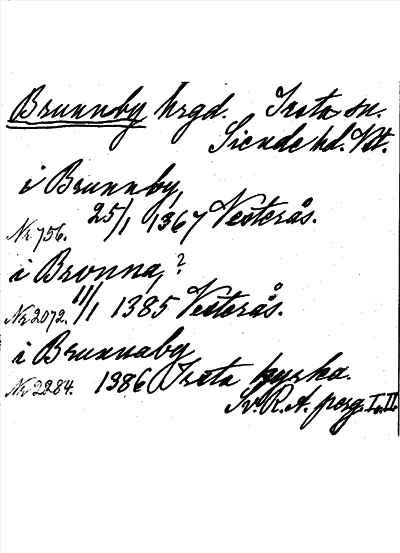 Brunnby hrgd. Irsta sn.
Siende hd. Vstm.
i Brunnby,
Nr 756. 25/1 1367 Vesterås.
i Bronna, ?
Nr 2072. 11/1 1385 Vesterås.
i Brunnaby
Nr 2284. 1386 Irsta kyrka.
Sv. R. A. perg. I o. II.